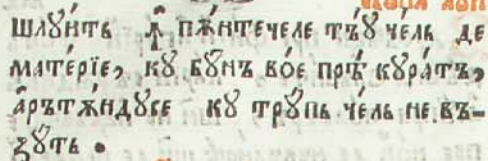 шлꙋ́итъ ꙟ҆ пѫ́нтечеле тъ́ꙋ че́ль де
мате́рїе, кꙋ бꙋ́нъ во́е прѣ кꙋра́тъ,
а҆рътѫ́ндꙋсе кꙋ трꙋ́пь че́ль не въ-
зꙋ́ть .